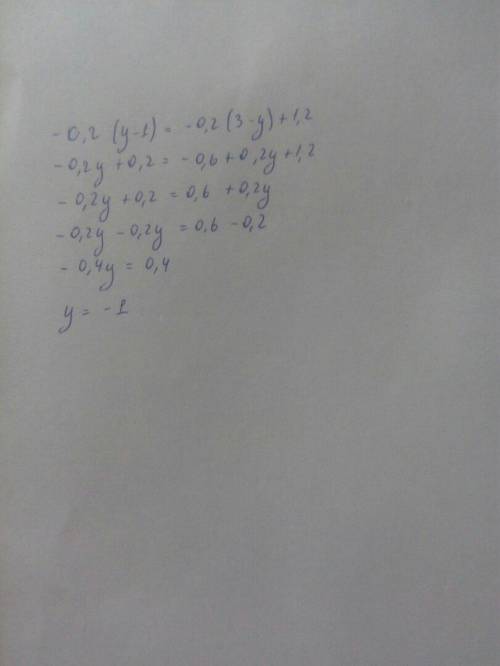 -0,2 (y-1) = -0,2 (3-y)+1,2
-0,2y +0,2 = -0,6+0,2y+1,2
-0,2y +0,2 = 0,6 +0,2y
-0,2y -0,2y = 0,6 -0,2
-0,4y = 0,4
y = -1